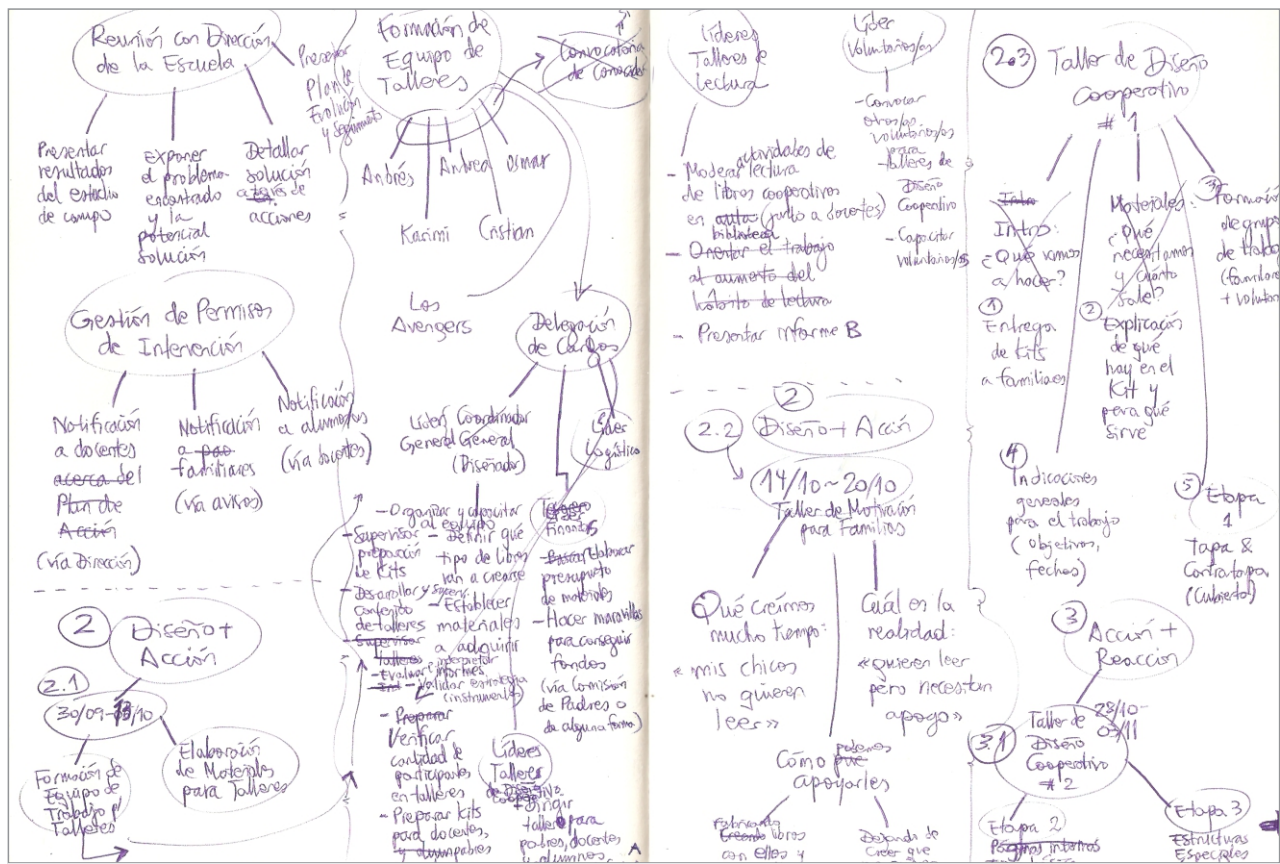 Reunión con Dirección
de la Escuela
Presentar
resultados
del estudio
de campo
Exponer
el problema
encontrado
y la
potencial
solución
Detallar
solución
a través de
acciones
Presentar
Plan de
Evolución
y Seguimiento
Gestión de Permisos
de Intervención
Notificación
a docentes
acerca del
Plan de
Acción
(vía Dirección)
Notificación
a pad
familiares
(vía avisos)
Notificación
a alumnos/as
(vía docentes)
2
Diseño +
Acción
2.1
30/09-13/10
Formación de
Equipo de
Trabajo p/
Talleres
Elaboración
de Materiales
para Talleres
Formación de
Equipo de
Talleres
Convocatoria
de
Andrés
Karimi
Andrea
Cristian
Osmar
Los
Avengers
Delegación
de Cargos
Líder
General
Coordinador
General
(Diseñador)
Líder
Logístico
- Organizar y capacitar
al equipo
- Supervisar
preparación
de Kits
- Desarrollar y
contenido
de talleres
- Supervisar
talleres
- Evaluar informes
- Definir qué
tipo de libros
van a crearse
- Establecer
materiales
a adquirir
interpretar
- Validar estrategia
(instrumento)
- Preparar
Verificar
cantidad de
participantes
en talleres
- Preparar Kits
para docentes,
y alumnos/padres
Líder
Finanzas
- Buscar Elaborar
presupuesto
de materiales
- Hacer maravillas
para conseguir
fondos
(vía Comisión
de Padres o
de alguna forma)
Líderes
Talleres
de Diseño
- Dirigir
taller para
padres, docentes
y alumnos
Líderes
Talleres de
Lectura
- Moderar actividades de
lectura
de libros cooperativos
en aula (junto a docentes)
biblioteca
- Orientar el trabajo
al aumento del
hábito de lectura
- Presentar informe B
Líder
Voluntarios/as
- Convocar
otros/as
voluntarios/as
para
talleres de
Diseño
Cooperativo
- Capacitar
voluntarios/as
2
Diseño + Acción
2.2
14/10~20/10
Taller de Motivación
para Familias
Qué creímos
mucho tiempo:
« mis chicos
no quieren
leer »
Cuál es la
realidad:
«quieren leer
pero necesitan
apoyo»
Cómo podemos
apoyarles
Fabricando
Creando libros
con ellos y
Dejando de
creer que
2.3
Taller de Diseño
Cooperativo
# 1
Intro
Intro:
¿Qué vamos
a hacer?
Materiales:
¿Qué
necesitamos
y cuánto
sale?
1
Entrega
de Kits
a familiares
2
Explicación
de qué
hay en el
Kit y
para qué
sirve
3
Formación
de grupos
de trabajo
(familiares
+ volunt
4
Indicaciones
generales
para el trabajo
(objetivos,
fechas)
5
Etapa
1
Tapa &
Contratapa
(Cubierta)
3
Acción +
Reacción
3.1
Taller de
Diseño
Cooperativo
# 2
28/10-
03/11
Etapa 2
Páginas internas
Etapa 3
Estructuras
Especiales